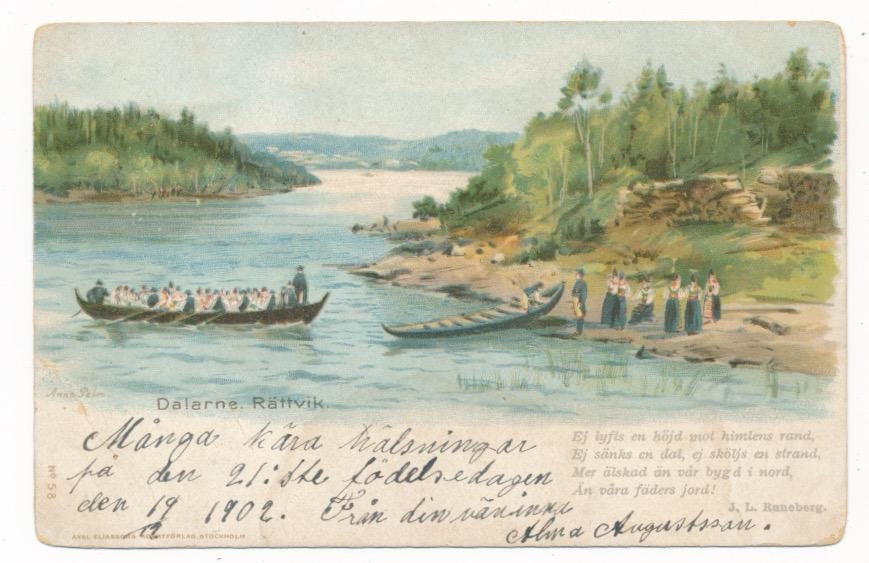 Anna Palm
Dalarne. Rättvik.
Många kära hälsningar
på den 21:ste födelsedagen
den 19/2 1902. Från din väninna
Alma Augustsson.
Ej lyfts en höjd mot himlens rand,
Ej sänks en dal, ej sköljs en strand,
Mer älskad än vår bygd i nord,
Än våra fäders jord!
J. L. Runeberg.
No 58
AXEL ELIASSONS KONSTFÖRLAG, STOCKHOLM